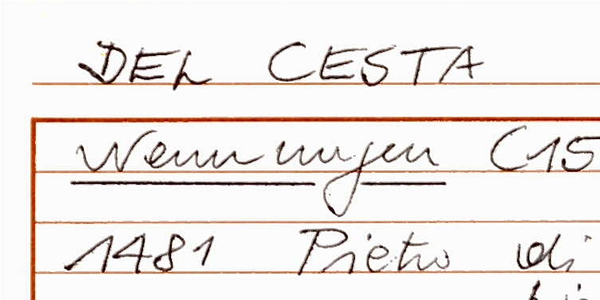 DEL CESTA
Nennungen C15
1481 Pietro di